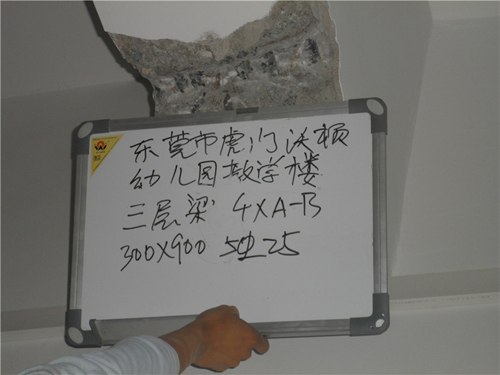 东莞市虎门沃顿
幼儿园教学楼
三层梁 4XA-B
300X900 5Φ25